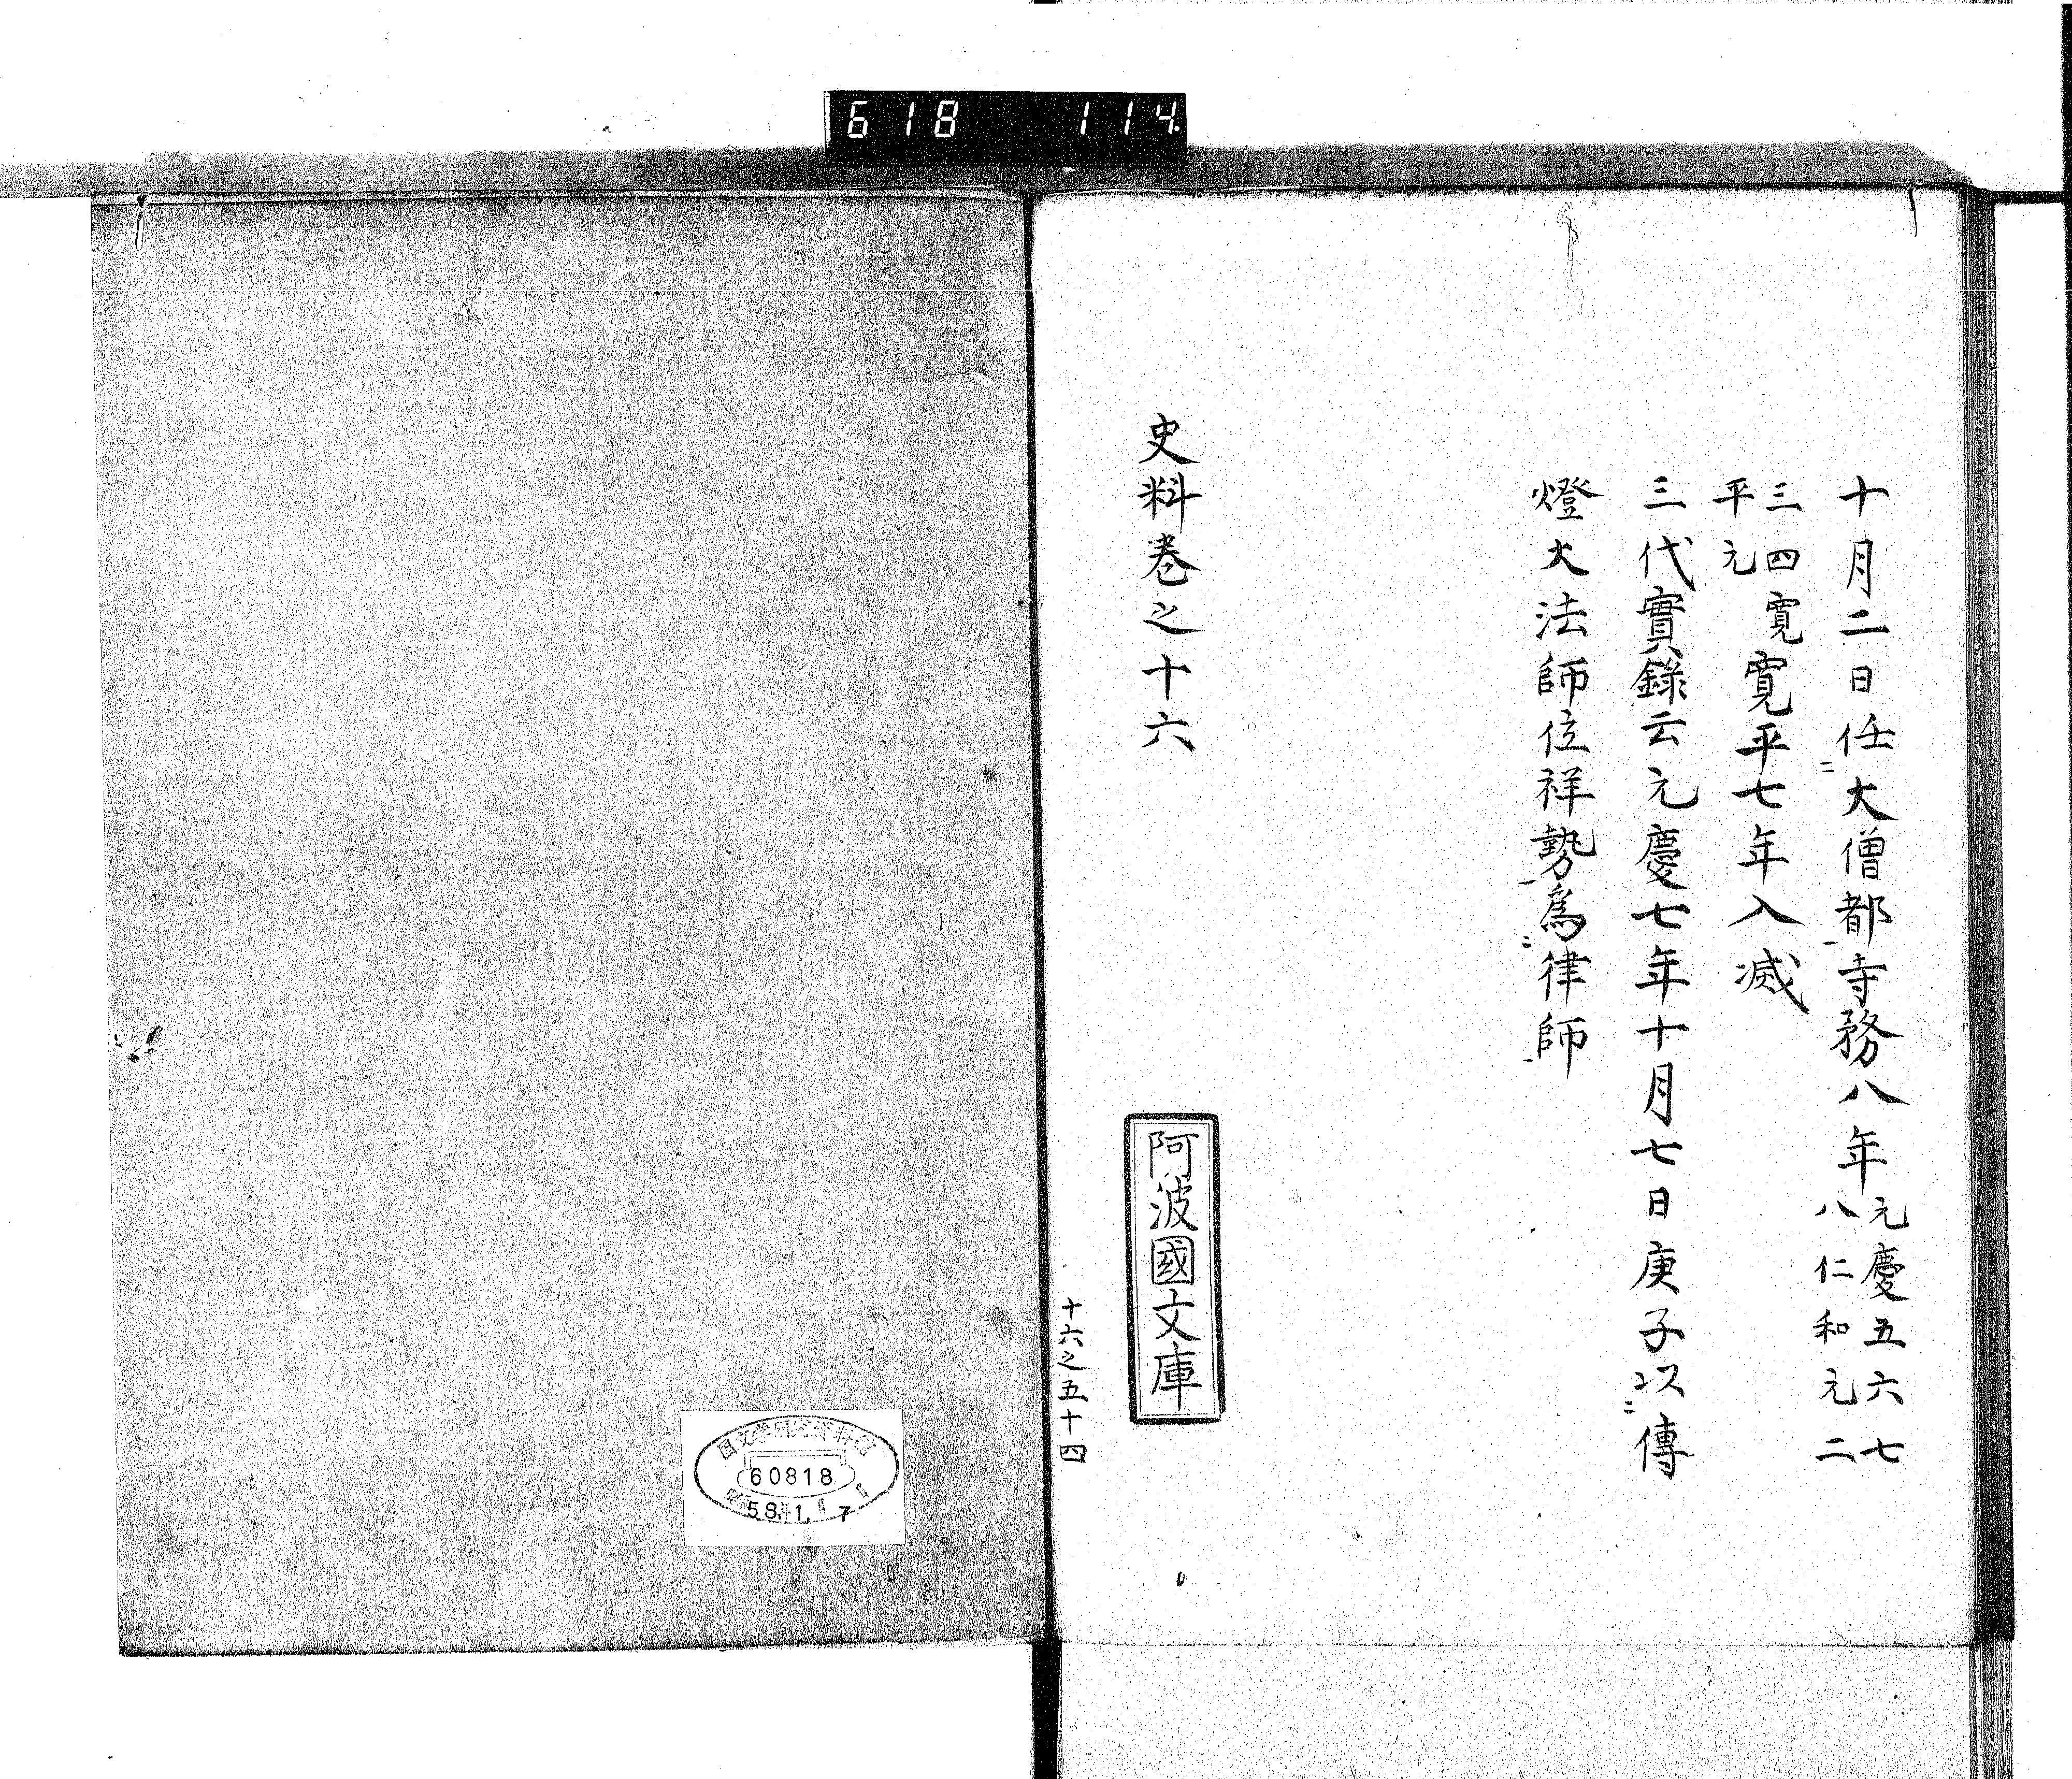 618 114
十月二日任二大僧都一寺務八年元慶五六七
八仁和元二
三四寛
平元
寛平七年入滅
三代實録云元慶七年十月七日庚子以二傳
燈大法師位祥勢一爲二律師一
史料巻之十六
阿波國文庫
十六之五十四
60818
58.1.7